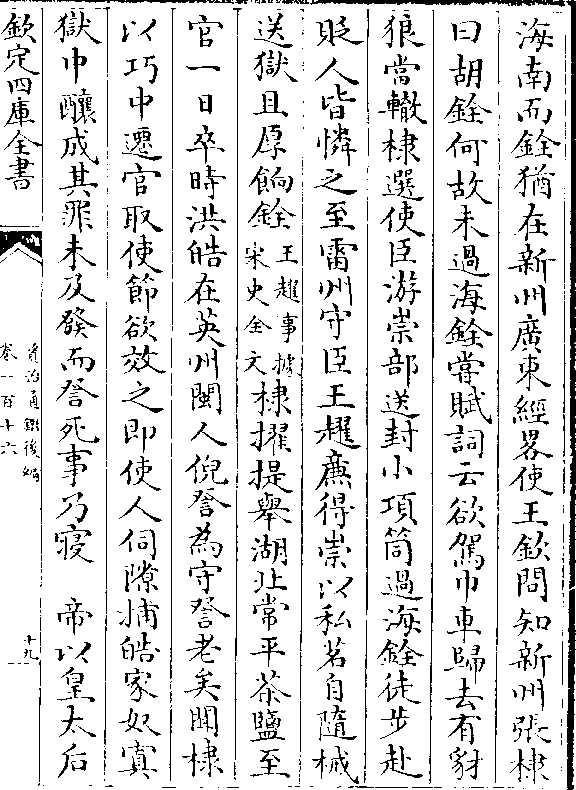 海南而銓猶在新州廣東經畧使王鈇問知新州張棣
曰胡銓何故未過海銓嘗賦詞云欲駕巾車歸去有豺
狼當轍棣選使臣游崇部送封小項筒過海銓徒步赴
貶人皆憐之至雷州守臣王趯廉得崇以私茗自隨械
送獄且厚餉銓王趯事據宋史全文棣擢提舉湖北常平茶鹽至
官一日卒時洪皓在英州閩人倪詧為守詧老矣聞棣
以巧中遷官取使節欲效之即使人伺隙捕皓家奴寘
獄中釀成其罪未及發而詧死事乃寢　帝以皇太后
欽定四庫全書
資治通鑑後編
卷一百十六
十九